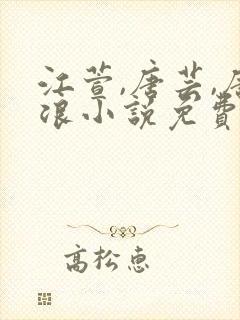 江萱,唐芸,唐
浪小說免費
高松惠